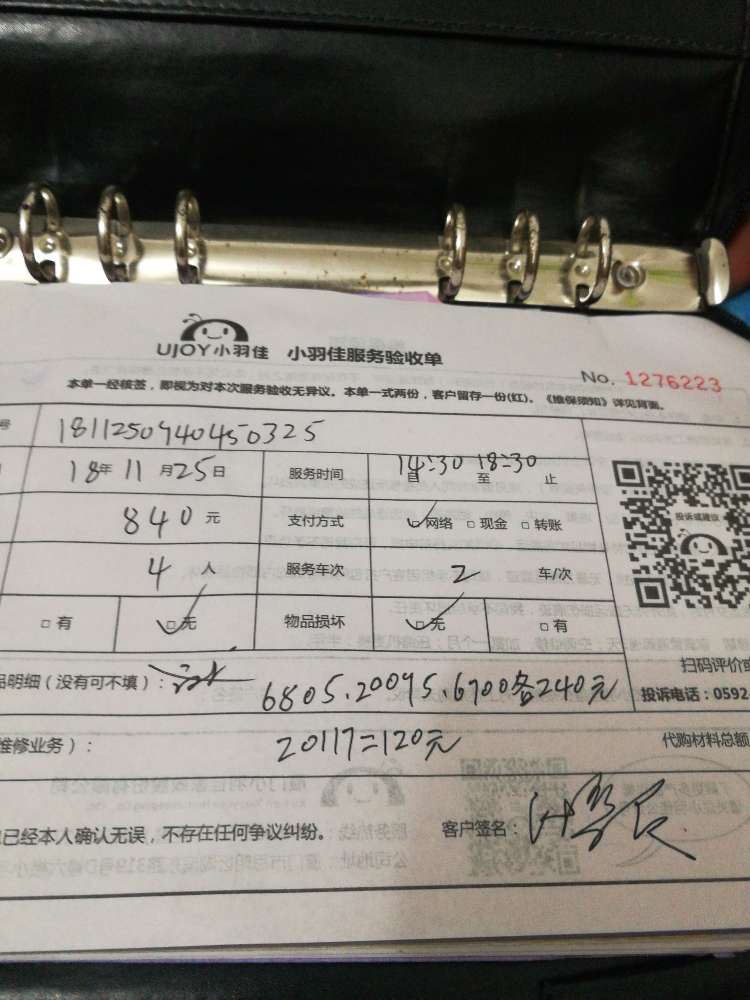 UJOY小羽佳 小羽佳服务验收单
No. 1276223
本单一经核签，即视为对本次服务验收无异议。本单一式两份，客户留存一份(红)。《维保须知》详见背面。
号 1811250940450325
18年11月25日 服务时间 14:30 自 至 18:30 止
840元 支付方式 网络 □现金 □转账
投诉或建议
4人 服务车次 2 车/次
□有 □无 物品损坏 □无 □有
品明细（没有可不填）：
扫码评价或
6805.20095.6700各240元
投诉电话：0592
维修业务）： 20117=120元 代购材料总额
已经本人确认无误，不存在任何争议纠纷。 客户签名：